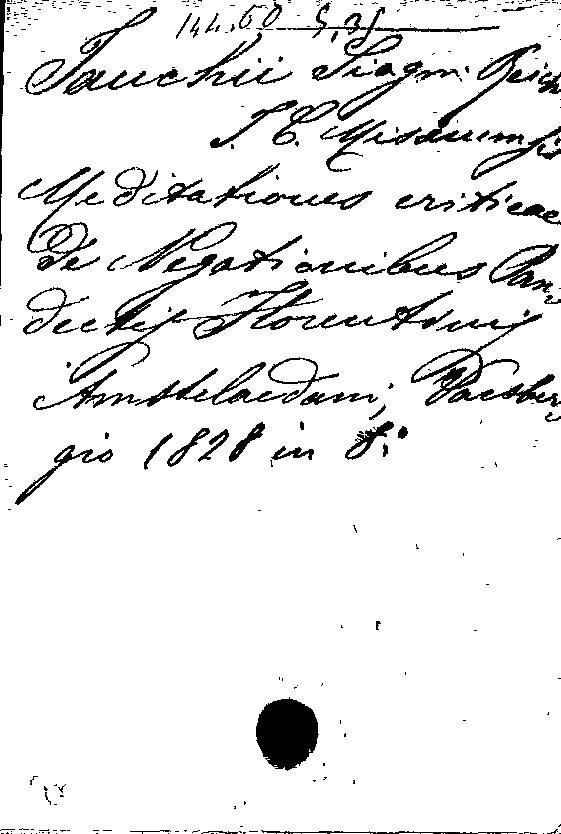 144.60 5,31
Jauchii Siegm. Reich
I. C. Misenensis
Meditationes criticae
de Negationibus Pan-
dectis Florentinis
Amstelaedami, Vaesber-
gio 1828 in 8.°